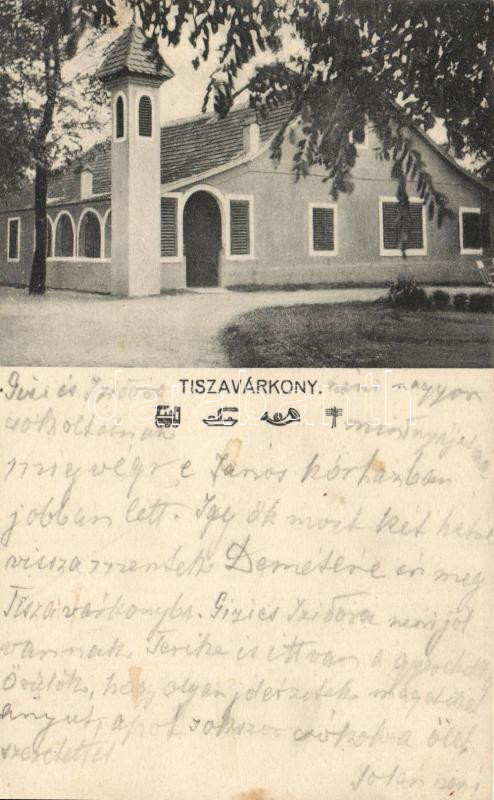 TISZAVÁRKONY.
Gizi és Izidora néni nagyon
csókoltatnak
mígvégre János kórházban
jobban lett. Így ők most két hétre
vissza mentek Demétére én meg
Tiszavárkonyba. Gizi és Izidora néni jól
vannak. Terike is itt van a
Örülök, hogy olyan jól érzitek magatokat
anyut, apát sokszor csókolva ölel
szeretettel
Jolán néni